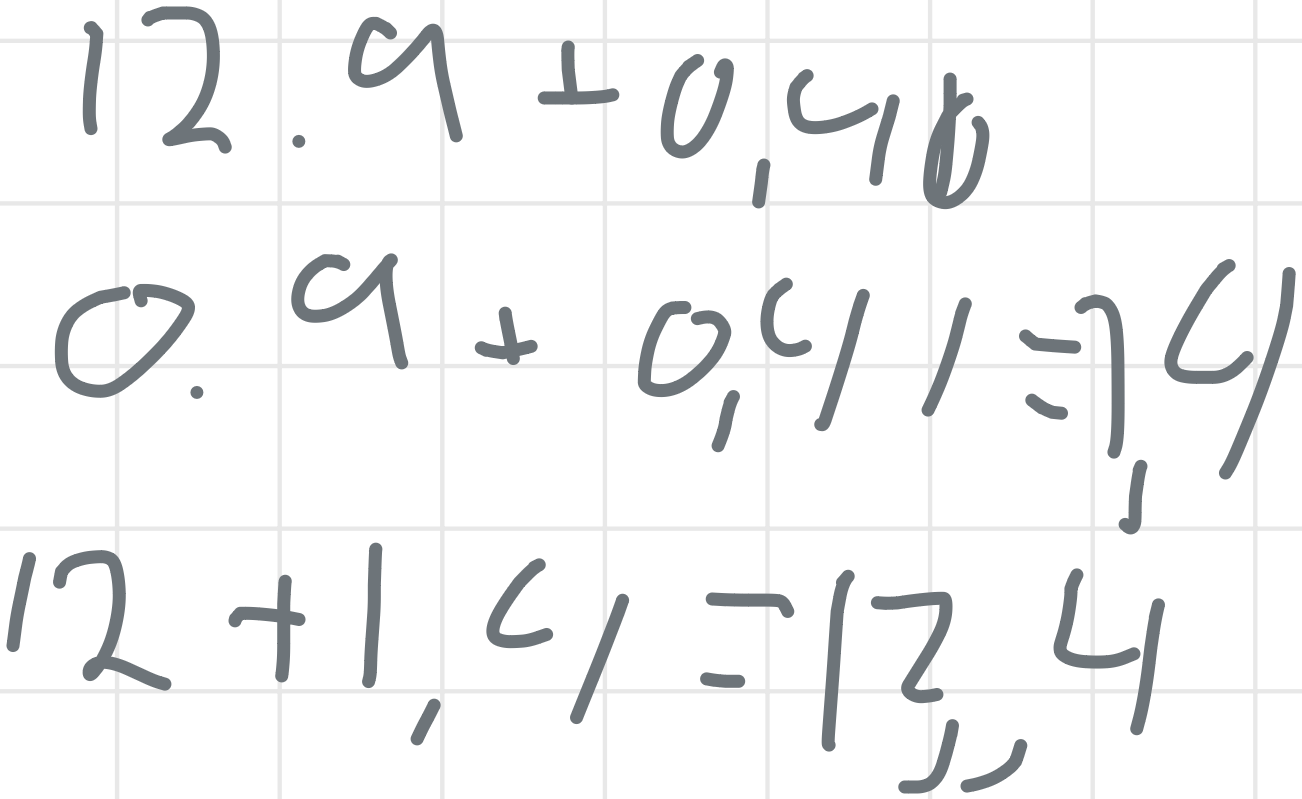 12.9+0,40
0.9+0,41=1,4
12+1,4=13,4